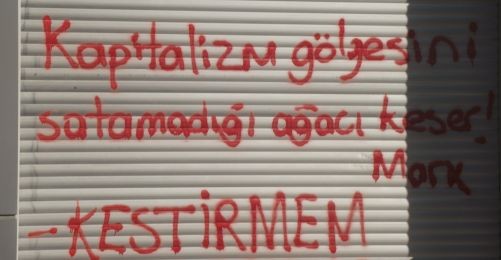 Kapitalizm gölgesini
satamadığı ağacı keser!
Marx
-KESTİRMEM